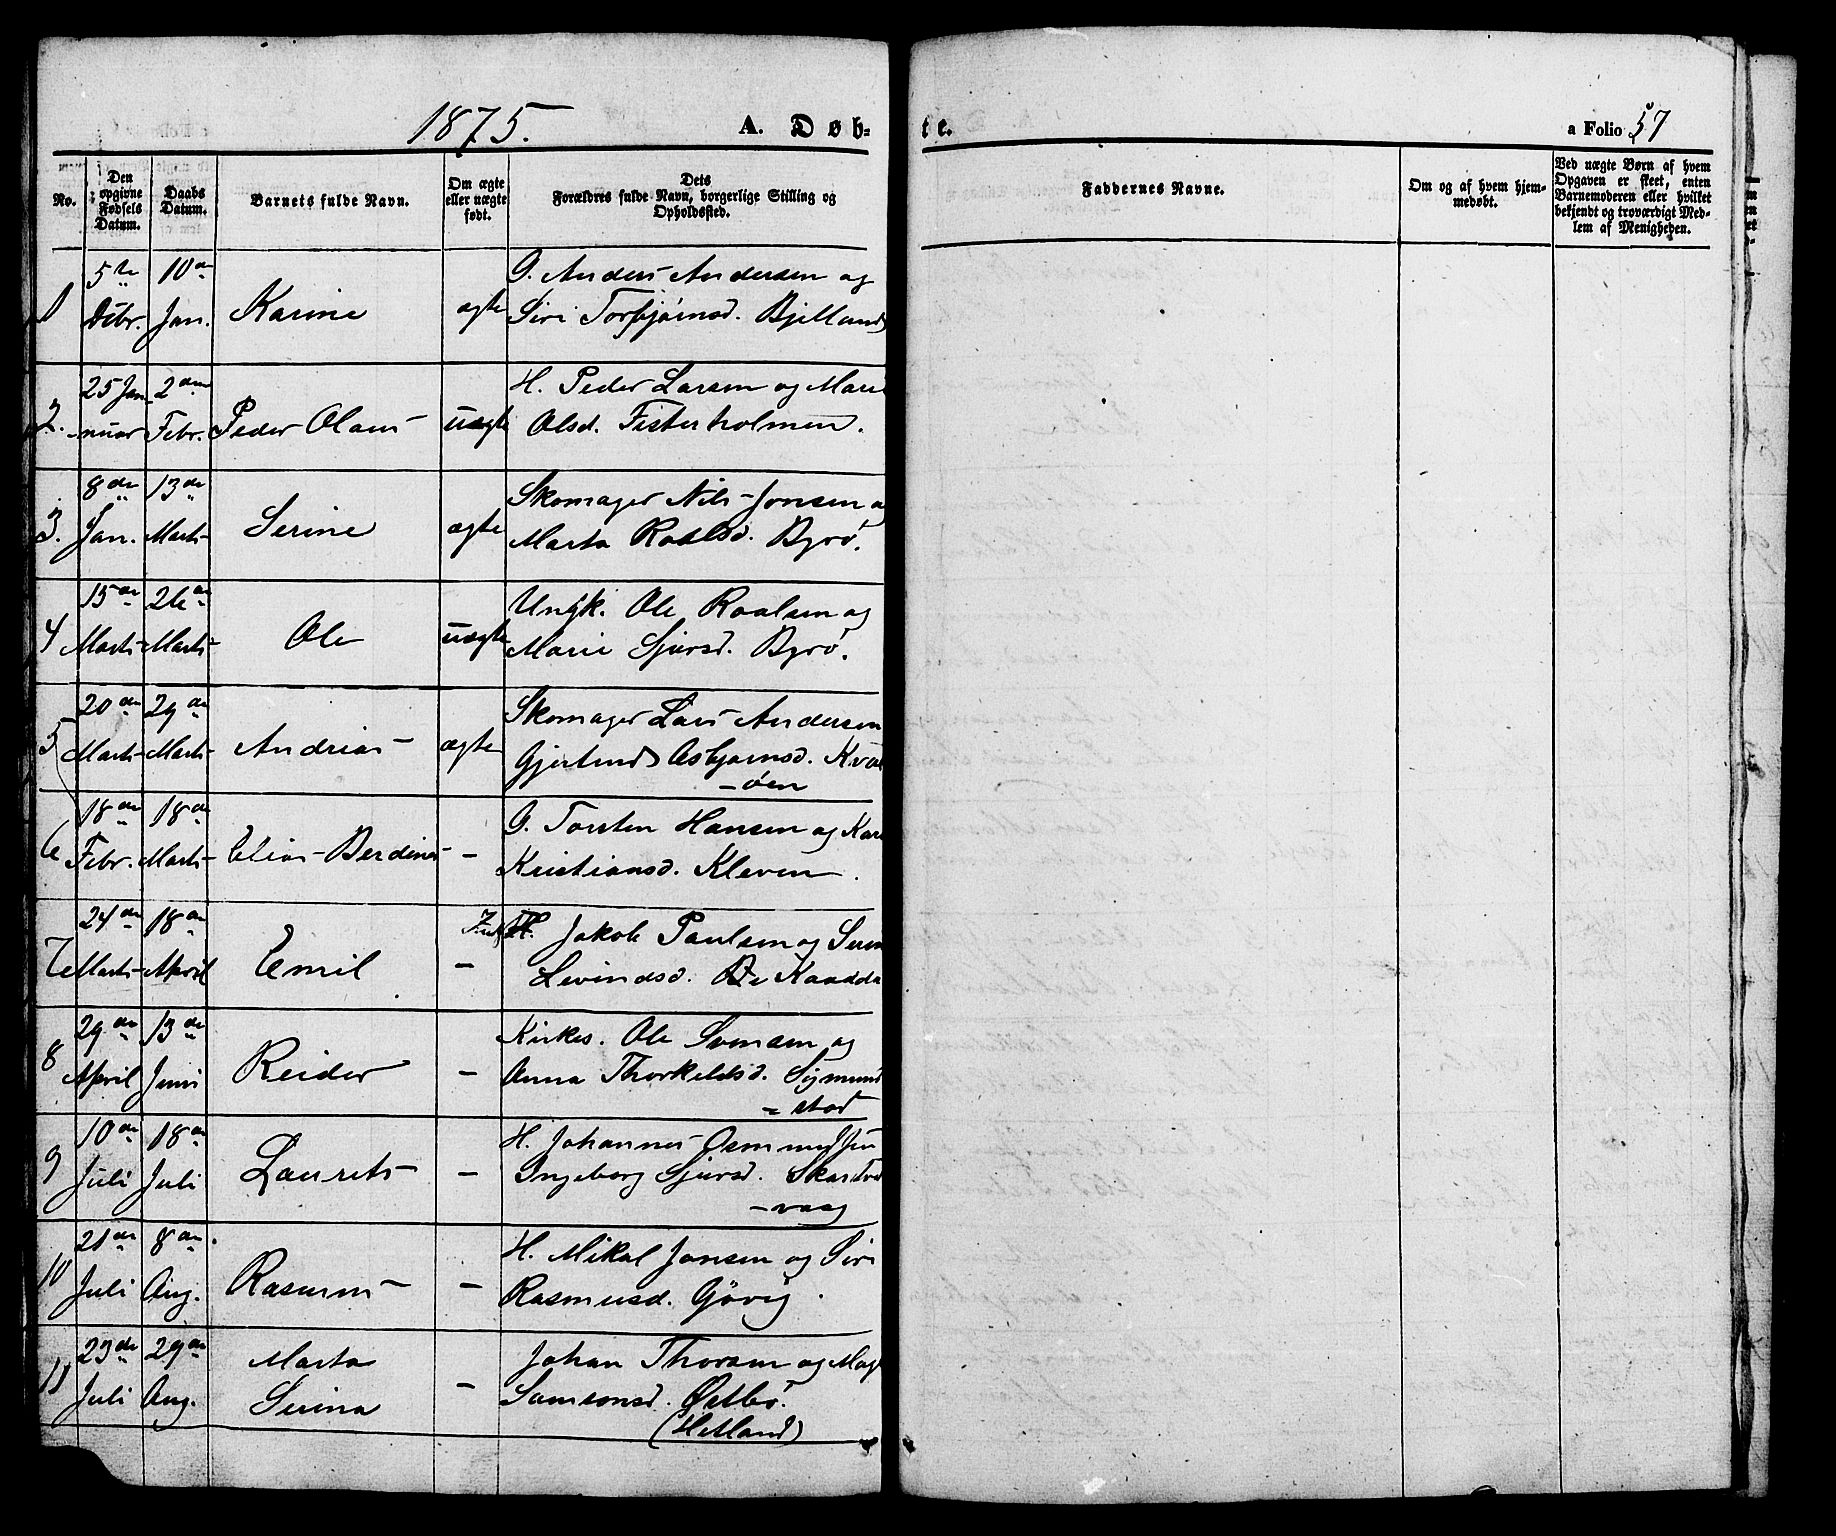 1875.
A. Døb-
te.
a Folio 57
No.
Den opgivne Fødsels Datum.
Daabs Datum.
Barnets fulde Navn.
Om ægte eller uægte født.
Dets Forældres fulde Navn, borgerlige Stilling og Opholdssted.
Faddernes Navne.
Om og af hvem hjemmedøbt.
Ved uægte Børn af hvem Opgaven er skeet, enten Barnemoderen eller hvilket bekjendt og troværdigt Medlem af Menigheden.
1
5te Debr.
10de Jan.
Karine
ægte
G. Anders Andersen og
Siri Torbjørnsd. Bjelland
2.
25 Januar
2den Febr.
Peder Olaus
uægte
H. Peder Larsen og Mari
Olsd. Fisterholmen.
3.
8de Jan.
13de Marts
Serine
ægte
Skomager Nils Jonsen o
Marta Roalsd. Byrø.
4
15de Marts
26de Marts
Ole
uægte
Ungk. Ole Roalsen og
Marie Sjursd. Byrø.
5
20de Marts
29de Marts
Andrias
ægte
Skomager Lars Andersen
Gjertrud Asbjørnsd. Kval
-øen
6
18de Febr.
18de Marts
Elias Berdines
-
G. Torsten Hansen og Kari
Kristiansd. Kleven.
7
24de Marts
18de April
Emil
-
H. Jakob Paulsen og Seri
Levindsd. Kaadda
8
29de April
13de Juni
Reider
-
Kirkes. Ole Svensen og
Anna Thorkeldsd. Sigmund
-stad
9
10de Juli
18de Juli
Laurits
-
H. Johannes Osmundsen
Ingeborg Sjursd. Skartve
-vaag
10
21de Juli
8de Aug.
Rasmus
-
H. Mikal Jonsen og Siri
Rasmusd. Gövig.
11
23de Juli
29de Aug.
Marta
Serina
-
Johan Thorsen og Magt
Samsonsd. Østbø.
(Hetland)